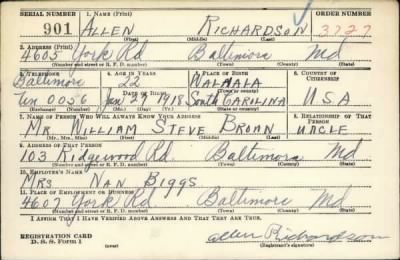 SERIAL NUMBER 1. NAME (Print) ORDER NUMBER
901 ALLEN RICHARDSON 3727
(First) (Middle) (Last)
2. ADDRESS (Print)
4605 York Rd Baltimore Md
(Number and street or R. F. D. number) (Town) (County) (State)
3. TELEPHONE 4. AGE IN YEARS 5. PLACE OF BIRTH 6. COUNTRY OF CITIZENSHIP
Baltimore 22 WALHALA
DATE OF BIRTH (Town or county)
Ten 0056 Jan 29 1918 South CAROLINA U S A
(Exchange) (Number) (Mo.) (Day) (Yr.) (State or country)
7. NAME OF PERSON WHO WILL ALWAYS KNOW YOUR ADDRESS 8. RELATIONSHIP OF THAT PERSON
Mr. WILLIAM STEVE BROAN UNCLE
(Mr., Mrs., Miss) (First) (Middle) (Last)
9. ADDRESS OF THAT PERSON
103 Ridgewood Rd. Baltimore Md
(Number and street or R. F. D. number) (Town) (County) (State)
10. EMPLOYER'S NAME
MRS NAN BIGGS
11. PLACE OF EMPLOYMENT OR BUSINESS
4607 York Rd Baltimore Md
(Number and street or R. F. D. number) (Town) (County) (State)
I AFFIRM THAT I HAVE VERIFIED ABOVE ANSWERS AND THAT THEY ARE TRUE.
REGISTRATION CARD
D. S. S. Form 1 (over) Allen Richardson
(Registrant's signature)